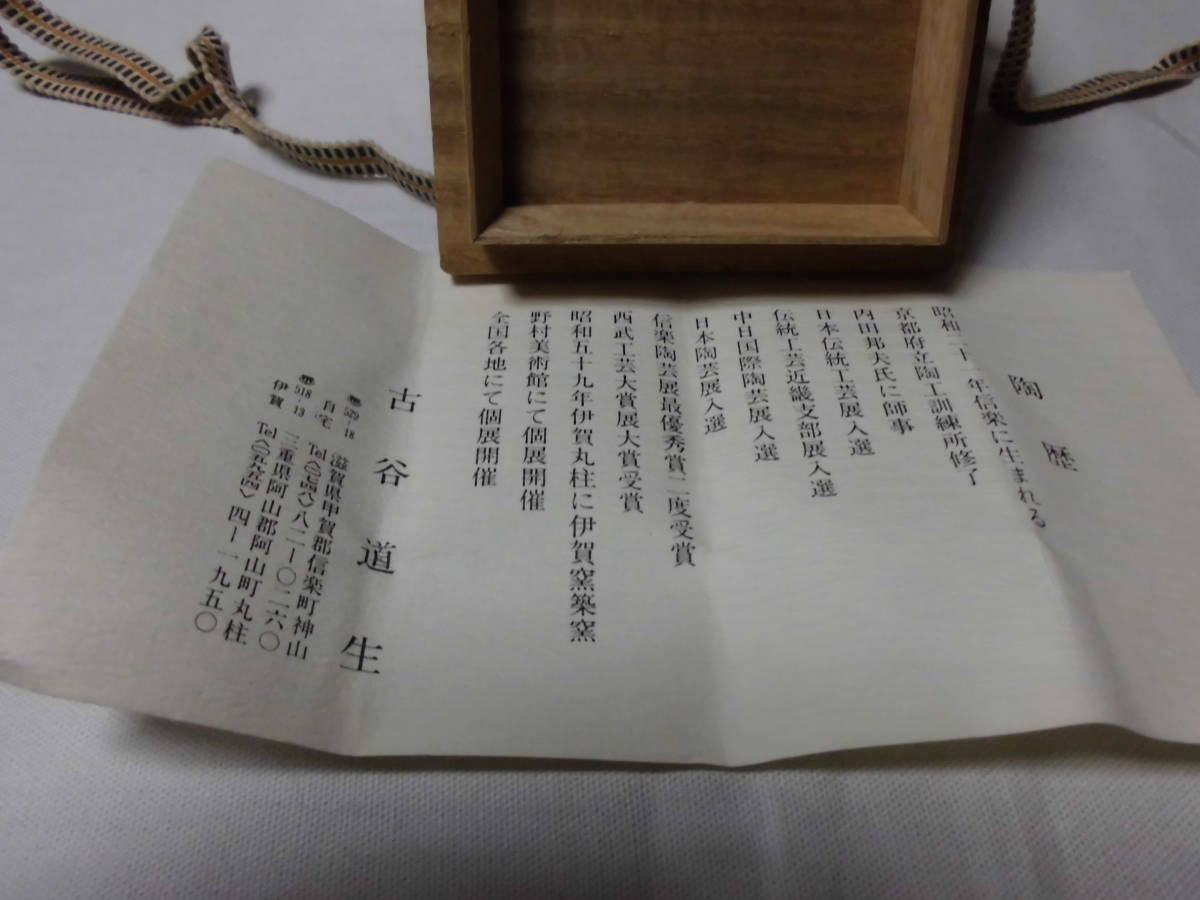 陶歴
昭和二十一年信楽に生まれる
京都府立陶工訓練所修了
内田邦夫氏に師事
日本伝統工芸展入選
伝統工芸近畿支部展入選
中日国際陶芸展入選
日本陶芸展入選
信楽陶芸展最優秀賞二度受賞
西武工芸大賞展大賞受賞
昭和五十九年伊賀丸柱に伊賀窯築窯
野村美術館にて個展開催
全国各地にて個展開催
古谷道生
〠529-18 滋賀県甲賀郡信楽町神山
自宅 Tel〈〇七四八〉八二ー〇二六〇
〠518-13 三重県阿山郡阿山町丸柱
伊賀 Tel〈〇五九五四〉四ー一九五〇